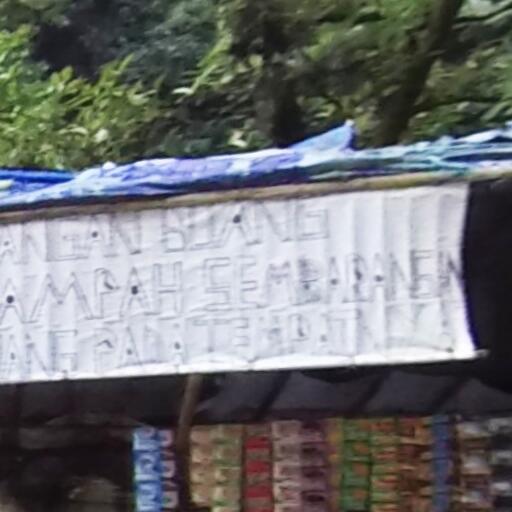 ANGAN BUANG
AMPAH SEMBARANGAN
ANG PADA TEMPATNYA